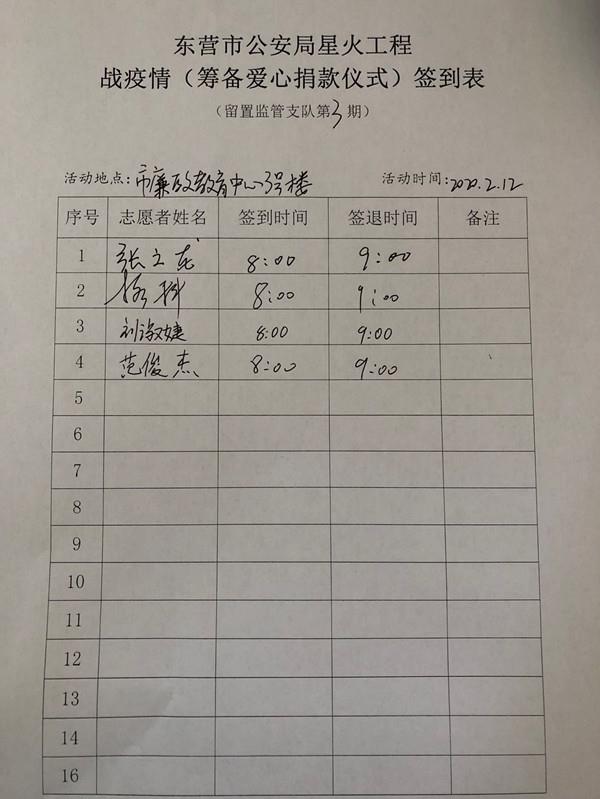 东营市公安局星火工程
战疫情（筹备爱心捐款仪式）签到表
（留置监管支队第3期）
活动地点:市廉政教育中心3号楼 活动时间:2020.2.12
序号 志愿者姓名 签到时间 签退时间 备注
1 张立龙 8:00 9:00
2 8:00 9:00
3 刘淑婕 8:00 9:00
4 范俊杰 8:00 9:00
5
6
7
8
9
10
11
12
13
14
16